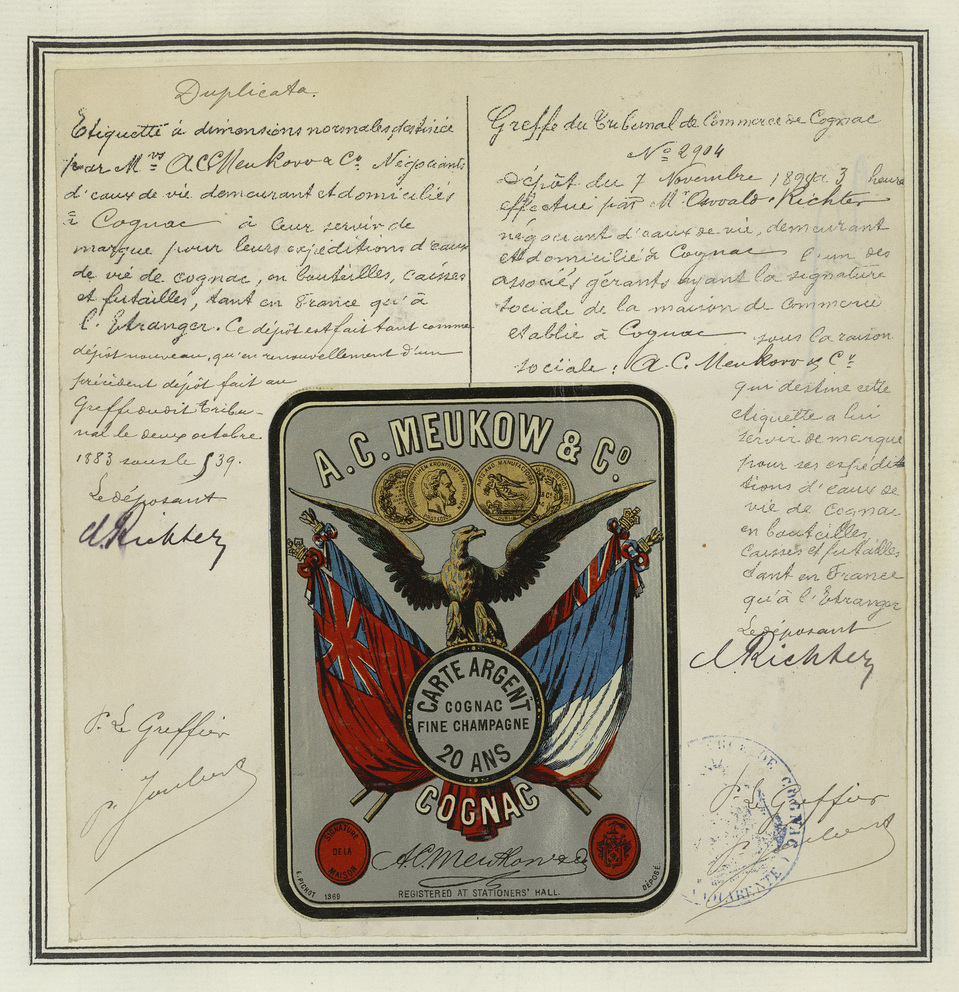 Duplicata.
Etiquette à dimensions normales destinée
par Mrs A.C. Meukow & Co. Négociants
d'eaux de vie demeurant et domiciliés
à Cognac à leur servir de
marque pour leurs expéditions d'eaux
de vie de cognac, en bouteilles, caisses
et futailles, tant en France qu'à
l'Etranger. Ce dépôt est fait tant comme
dépôt nouveau, qu'en renouvellement d'un
précédent dépôt fait au
Greffe dudit Tribu-
nal le deux octobre
1883 sous le § 39.
Le déposant
O. Richter
P. Le Greffier
Joubert
Greffe du Tribunal de Commerce de Cognac
No 2904
Dépôt du 7 Novembre 3 heures
effectué par Mr Oswald Richter
négociant d'eaux de vie, demeurant
et domicilié à Cognac l'un des
associés gérants ayant la signature
sociale de la maison de Commerce
etablie à Cognac sous la raison
sociale : A.C. Meukow & Co
qui destine cette
étiquette a lui
servir de marque
pour ses expédi-
tions d'eaux de
vie de Cognac
en bouteilles,
caisses et futailles
tant en France
qu'à l'Etranger
Le déposant
O. Richter
P. Le Greffier
Joubert
DE COGNAC
CHARENTE
A.C. MEUKOW & Co
CARTE ARGENT
COGNAC
FINE CHAMPAGNE
20 ANS
COGNAC
SIGNATURE
DE LA
MAISON
A.C. Meukow & Co
E. PICHOT 1369
REGISTERED AT STATIONERS' HALL.
DÉPOSÉ.